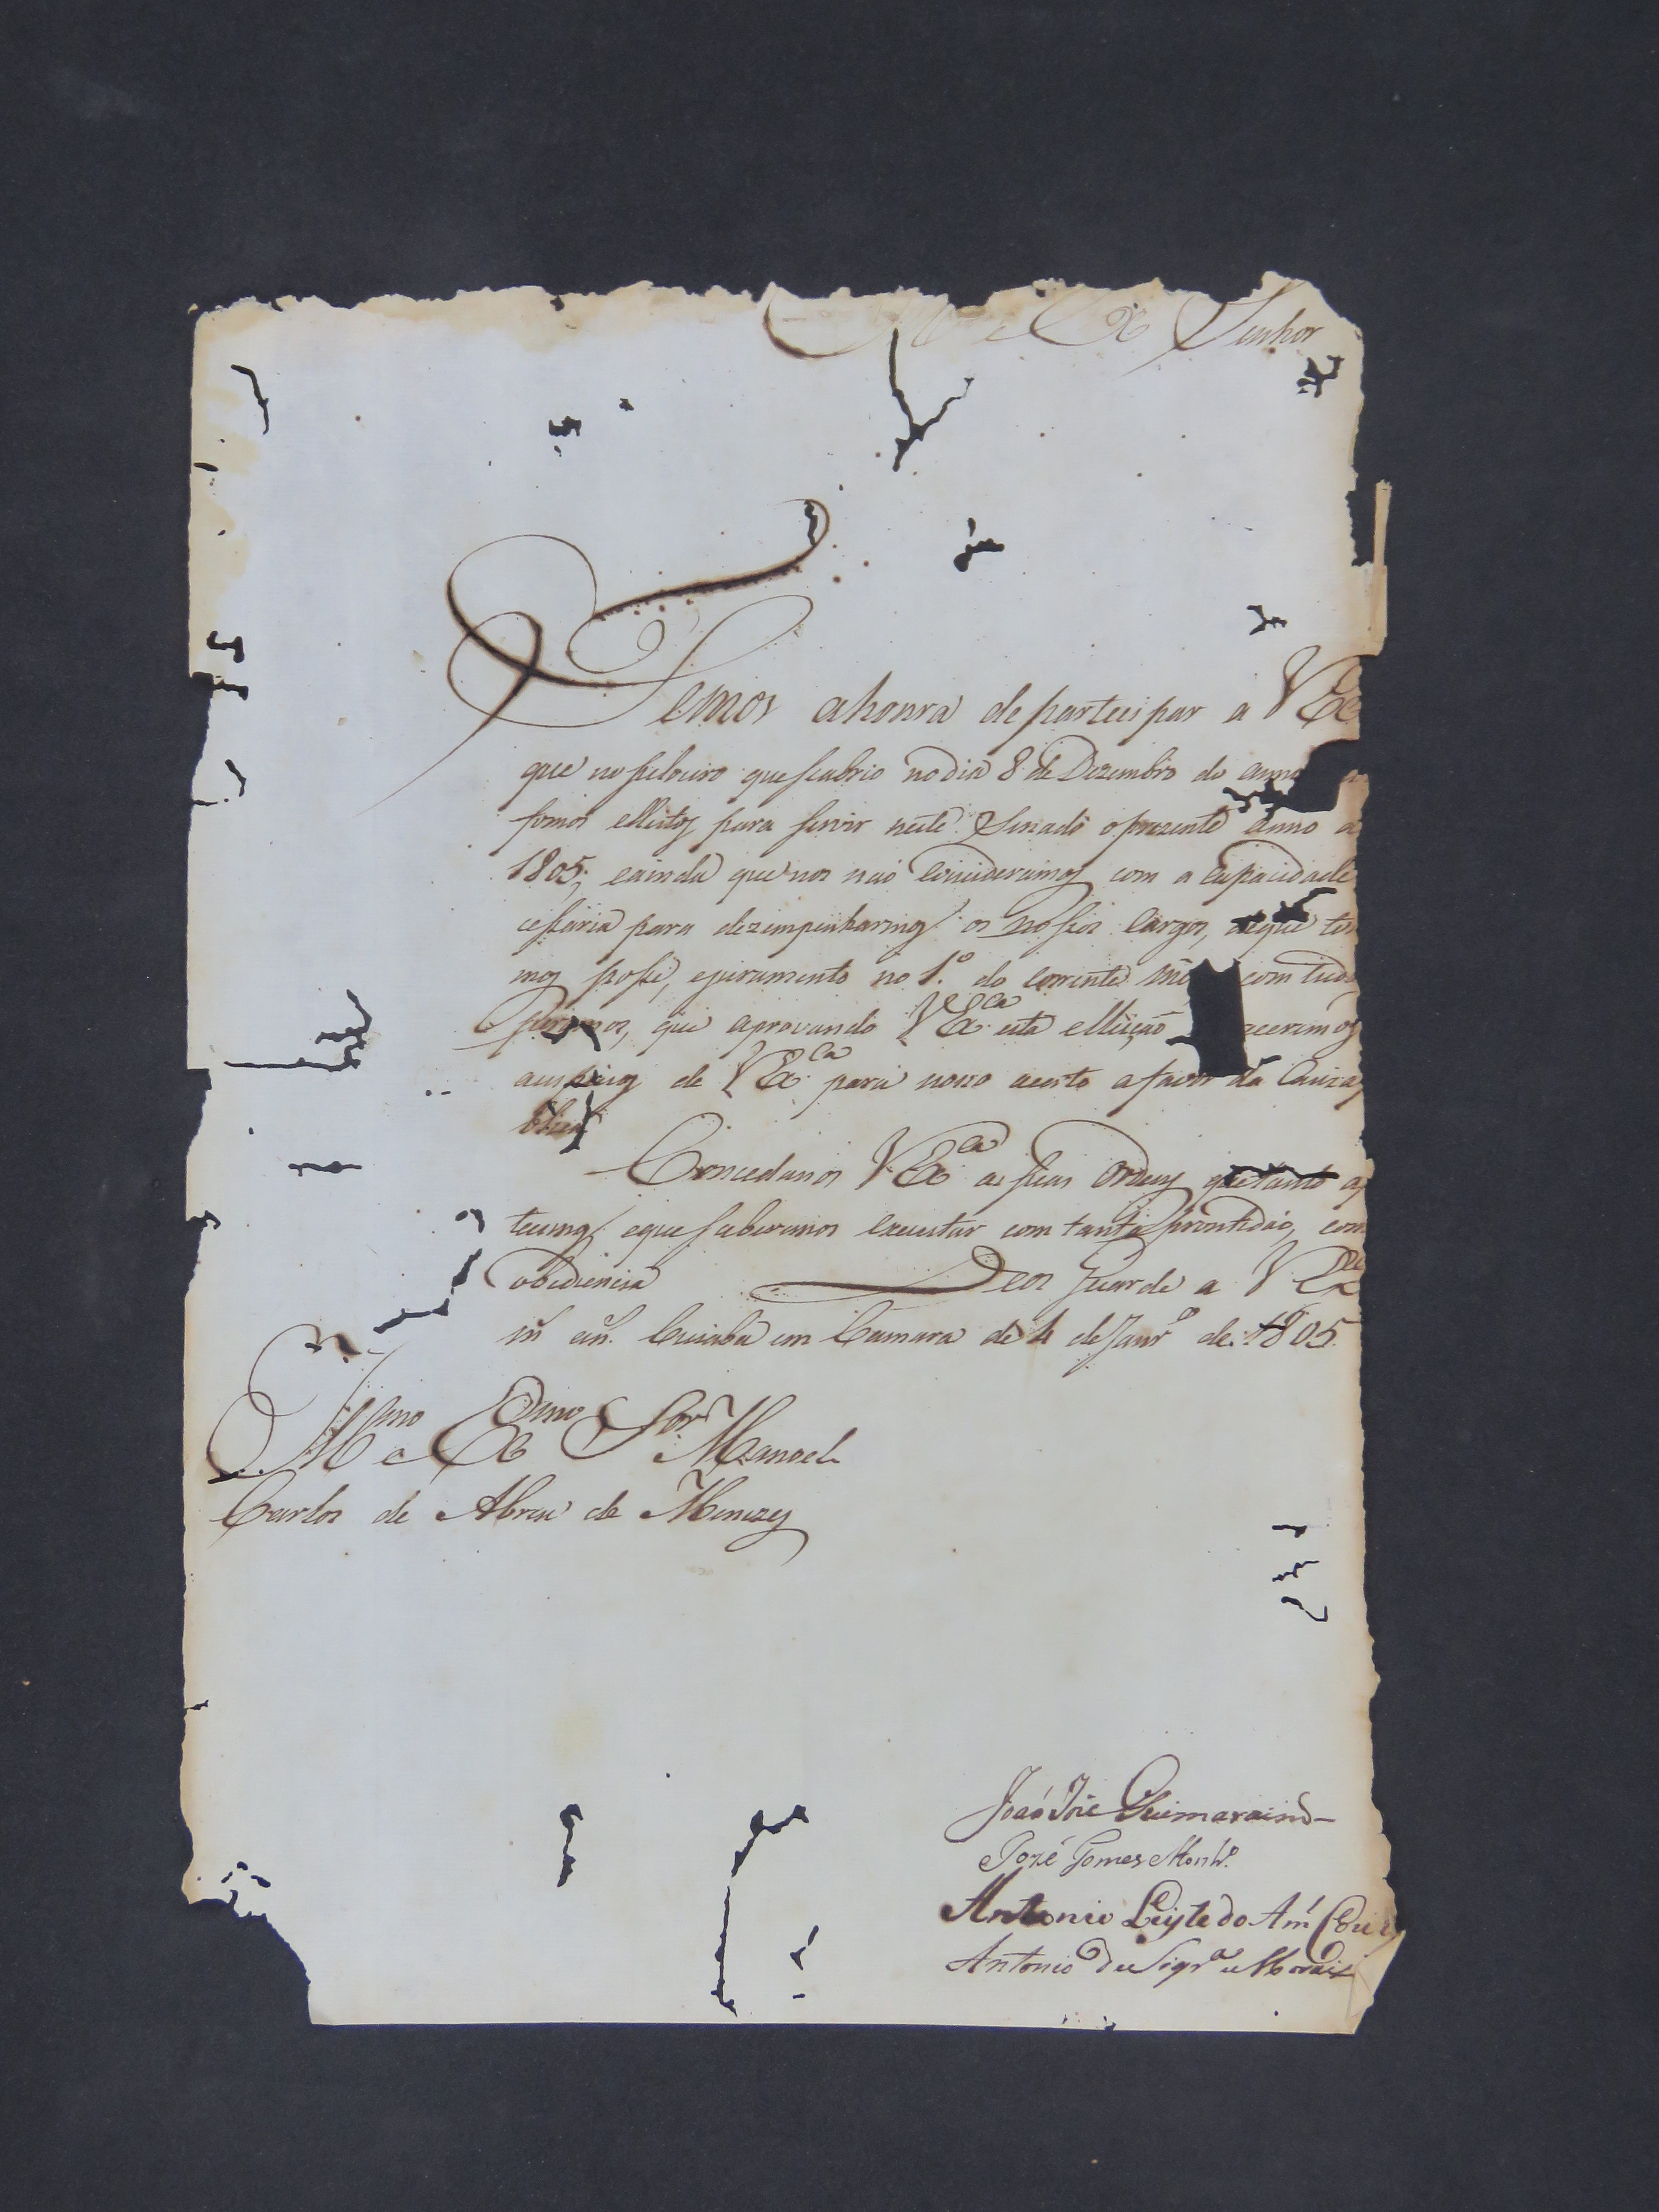 Ex Senhor
Temos ahonra departecipar a VEx
que nopelouro queseabrio nodia 8 de Dezembro do anno
fomos elleitos para servir neste Senado oprezente anno d
1805; eainda que nos naõ consideramos com a capacidade
cessaria para dezempenharmos os nossos cargos, deque to
mos posse, ejuramento no 1.º do corrente com tudo
Esperamos, que aprovando VEx.ca esta elleiçaõ receramos
auspicios de VEx.ca para nosso acerto afavor da Cauza
blica
Concedanos VEx.ca as suas Ordens quetanto a
tecemos, equesaberemos executar com tanta prontidaõ, com
obediencia Deos Guarde a VEx
m an. Cuiabá em Camara de 4 deJanr.º de 1805.
Ill.mo e Ex.mo S.or Manoel
Carlos de Abreu de Menezes
Joaõ Jozé Guimarains
Jozé Gomes Montr.º
Antonio Leyte do Am.l
Antonio de Siqr.a e Morais